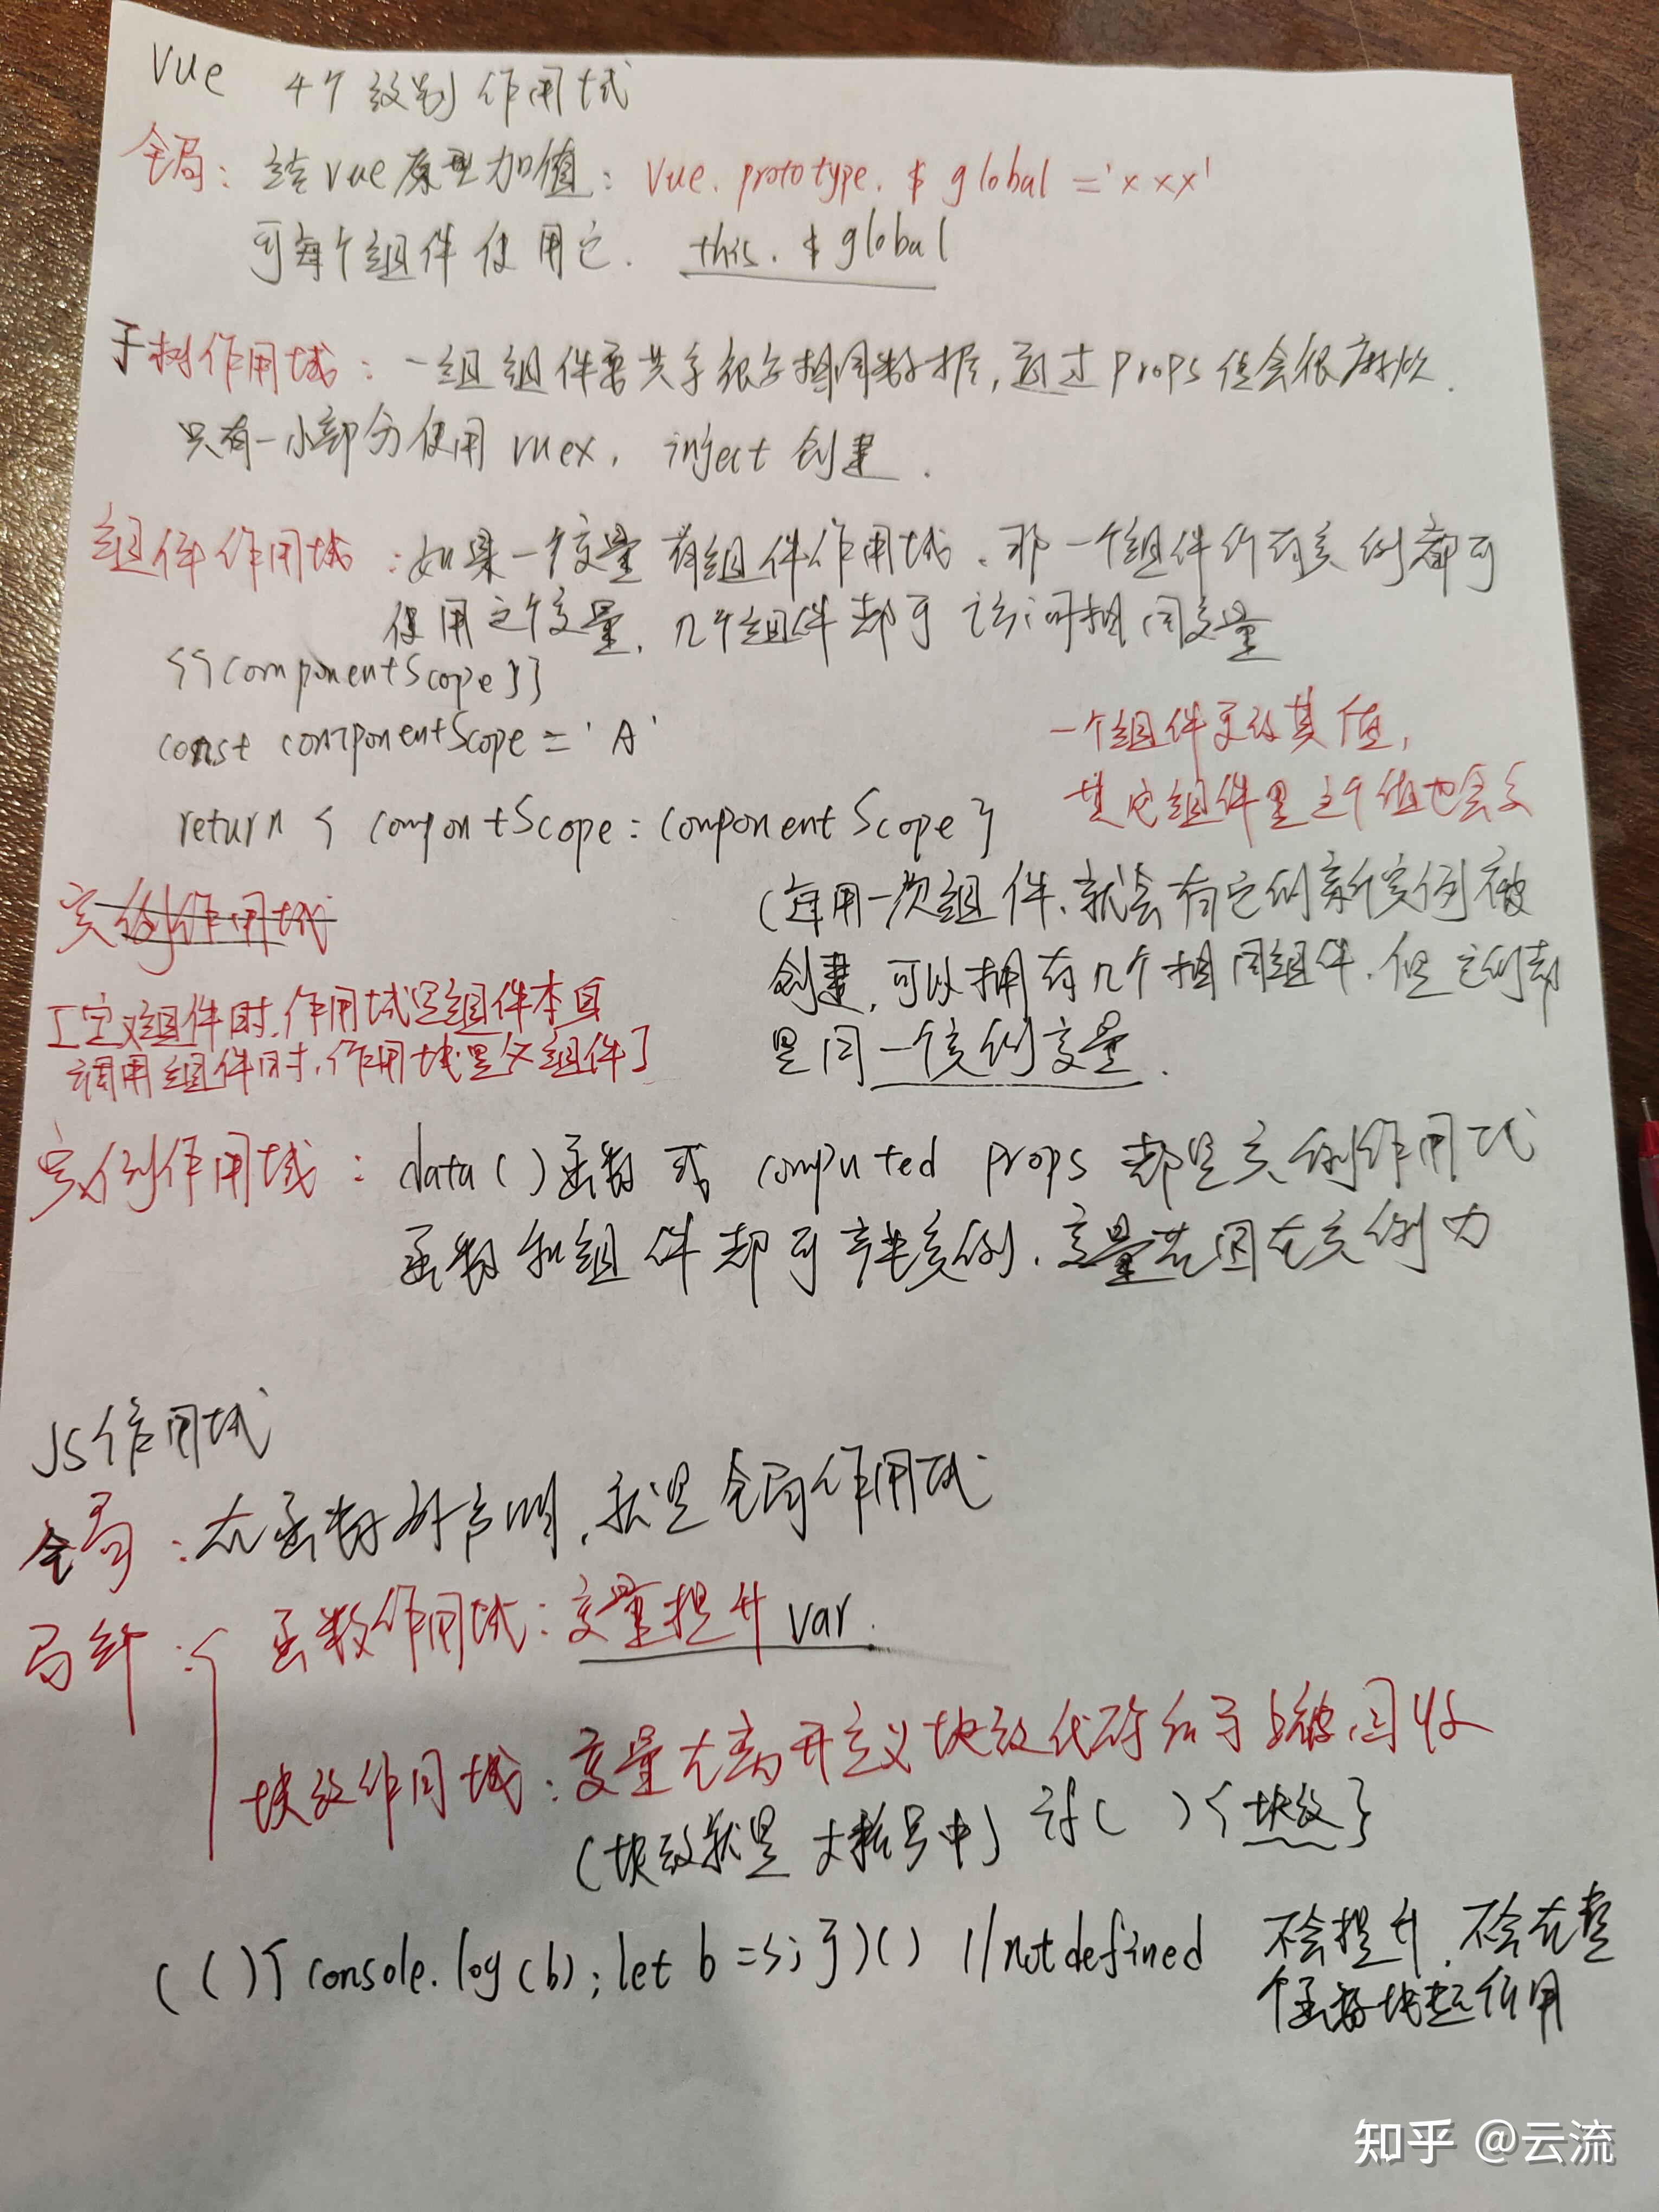 Vue 4个级别作用域
全局：给Vue原型加值：Vue.prototype.$global='xxx'
可每个组件使用它. this.$global
子树作用域：一组组件需共享很多相同数据,通过props值会很麻烦.
只有一小部分使用vuex, inject创建.
组件作用域：如果一个变量有组件作用域、那一个组件所有实例都可
使用这个变量,几个组件都可访问相同变量
{{componentScope}}
const componentScope='A'
一个组件更改其值,
其它组件里这个值也会变
return { compontScope:componentScope}
实例作用域
(每用一次组件、就会有它的新实例被
创建,可以拥有几个相同组件.但它们都
是同一个实例变量.
[定义组件时,作用域是组件本身
调用组件时,作用域是父组件]
实例作用域：data()函数或computed props都是实例作用域
函数和组件都可产生实例.变量范围在实例内
JS作用域
全局：在函数外声明,就是全局作用域
局部：{ 函数作用域：变量提升var.
块级作用域：变量在离开定义块级代码后马上被回收
(块级就是大括号中) if( ){块级}
(()){console.log(b);let b=3;})() //not defined 不会提升,不会在整
个函数块起作用
知乎 @云流